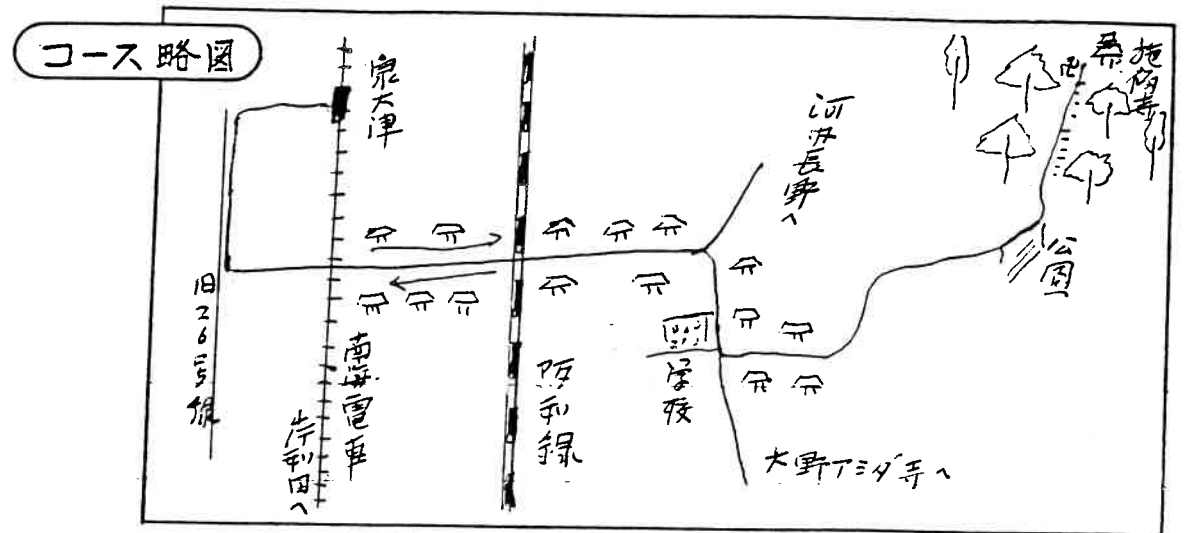 コース略図
泉大津
旧26号線
南海電車
岸和田へ
阪和線
河内長野へ
学校
大野アミダ寺へ
公園
施福寺